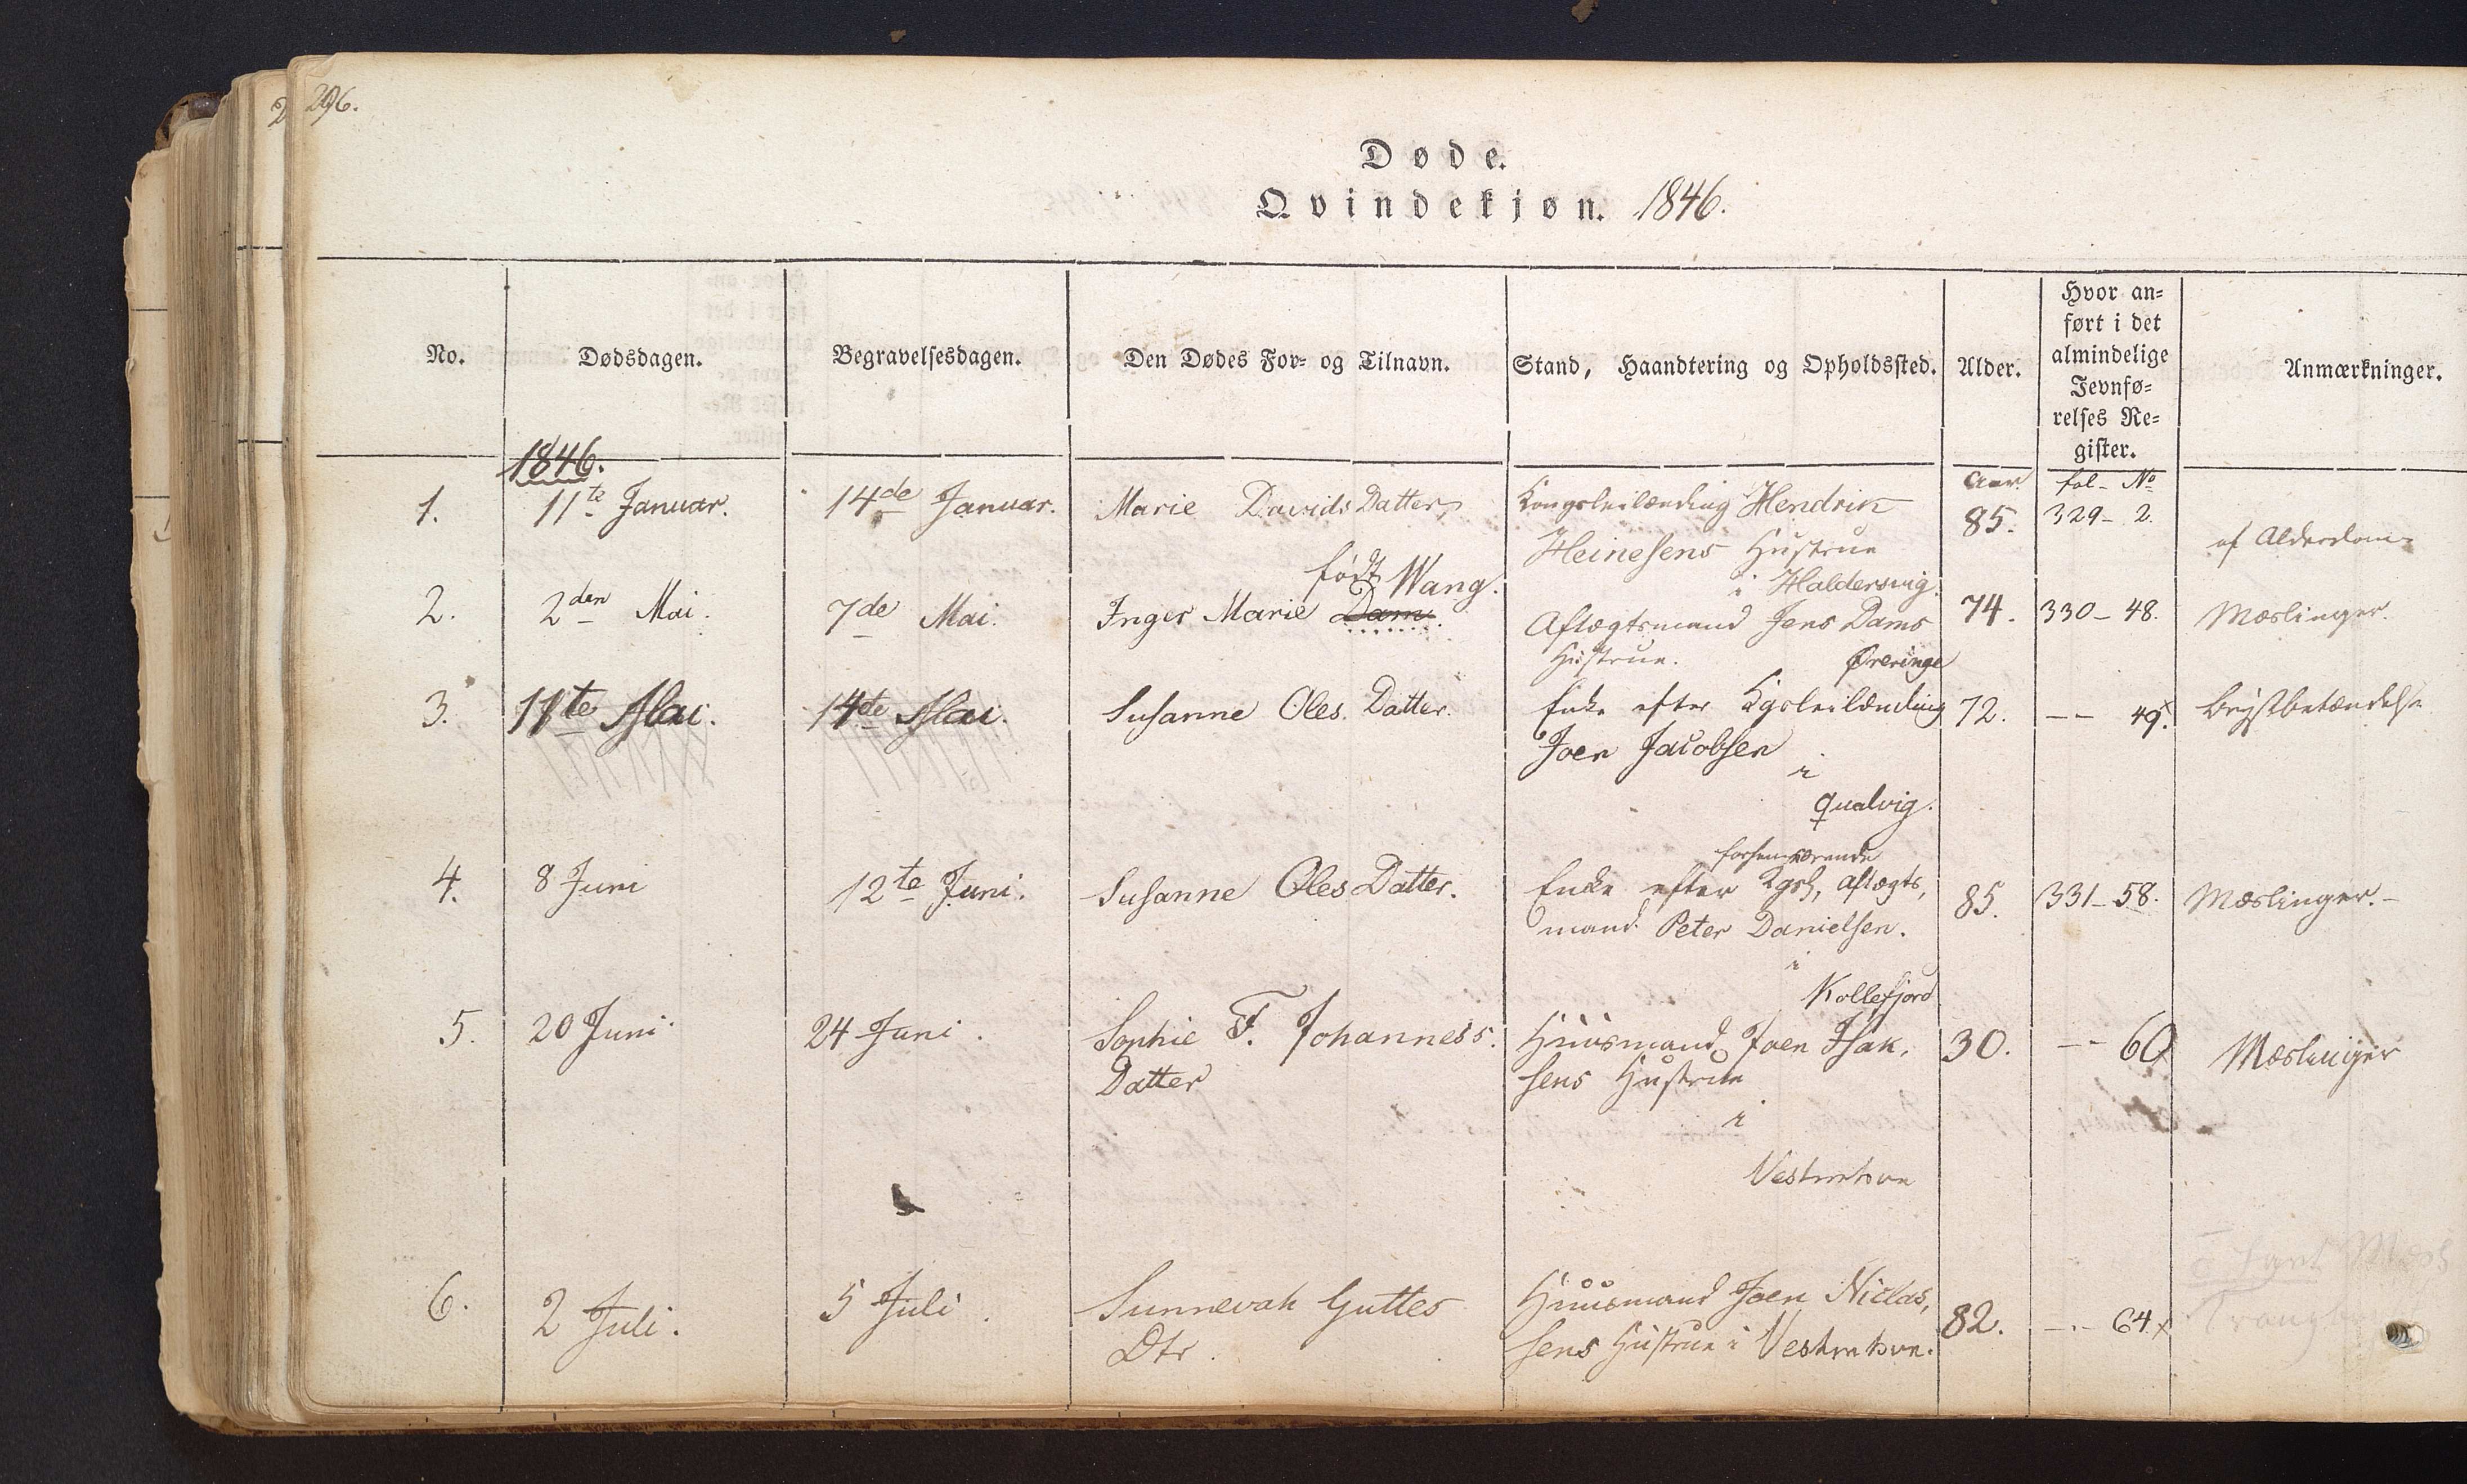 296.
Døde.
Qvindekjøn. 1846.
No.
Dødsdagen.
Begravelsesdagen.
Den Dødes For- og Tilnavn.
Stand, Haandtering og Opholdssted.
Alder.
Hvor an-
ført i det
almindelige
Jevnfø-
relses Re-
gister.
Anmærkninger.
1846.
Aar.
fol- No
1.
11te Januar.
14de Januar.
Marie Davids Datter
Kongsleilænding Hendrik
Heinesens Hustrue
i Haldersvig.
85.
329- 2.
af Alderdom
2.
2den Mai.
7de Mai.
født Wang.
Inger Marie Dam.
Aflægtsmand Jens Dams
Hustrue. Øreringe
74.
330- 48.
Mæslinger.
3.
11te Mai.
14de Mai.
Susanne Oles Datter.
Enke efter Kgsleilænding
Joen Jacobsen
i
Qualvig.
72.
-- 49.
Brystbetændelse
4.
8 Juni
12te Juni.
Susanne Oles Datter.
forhenværende
Enke efter Kgsl, Aflægts,
mand Peter Danielsen.
i
Kollefjord
85.
331- 58.
Mæslinger.-
5.
20 Juni
24 Juni.
Sophie F. Johannes s.
Datter
Huusmand Joen Isak,
sens Hustrue
i
Vestmhvn
30.
-- 60
Mæslinger
6.
2 Juli.
5 Juli.
Sunnevah Guttes
Dtr.
Huusmand Joen Niclas,
sens Hustrue i Vestmhvn.
82.
-- 64